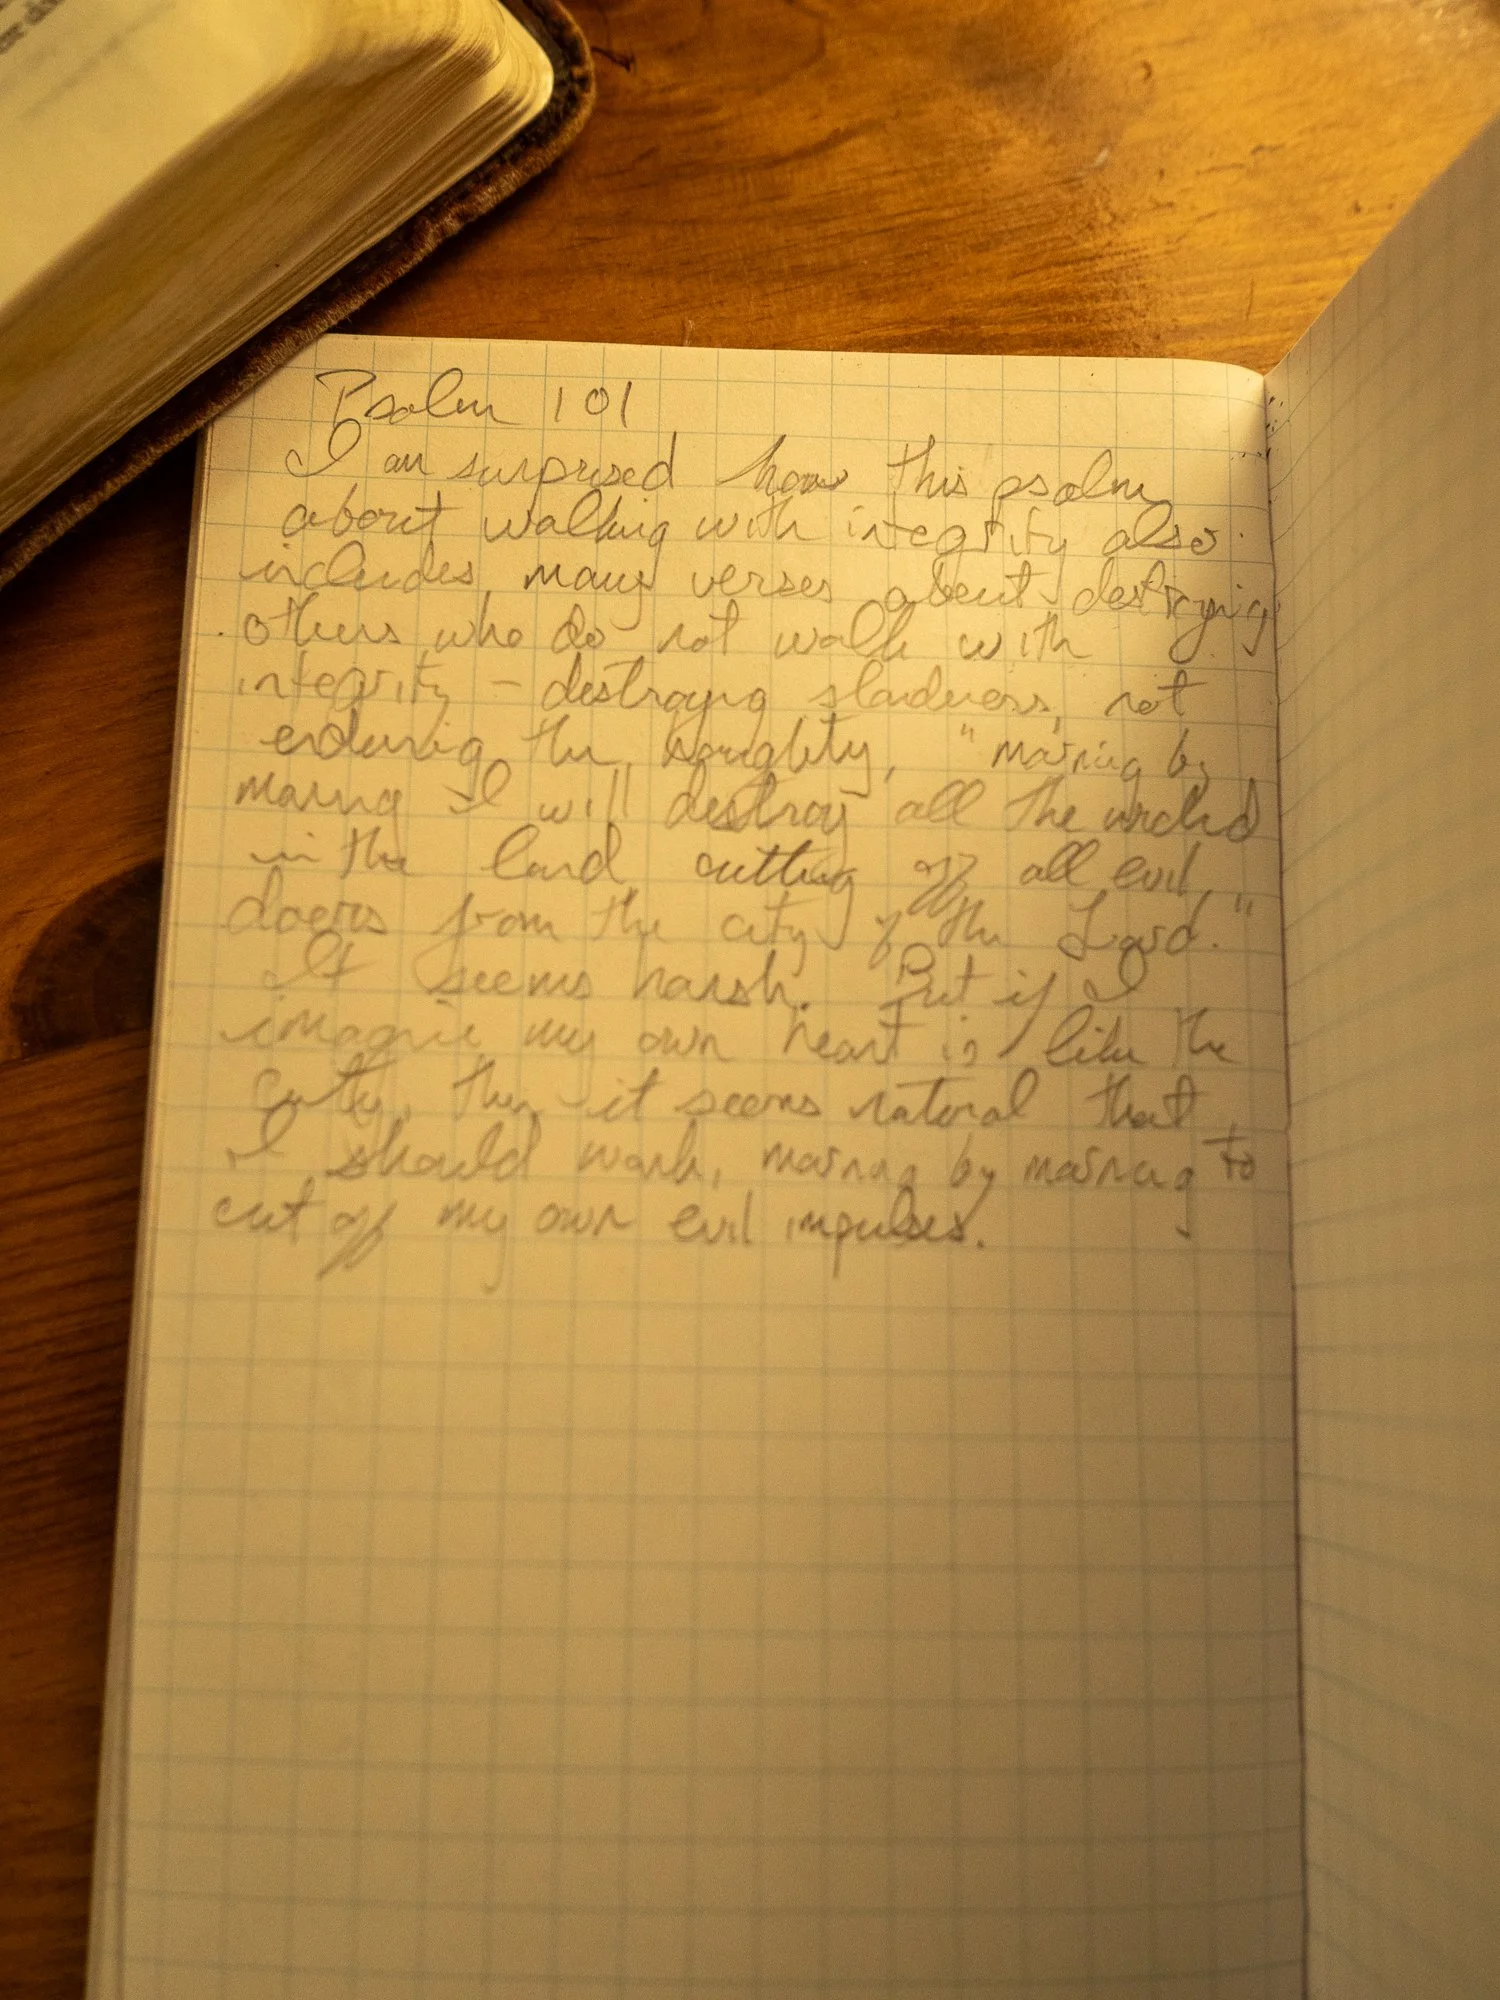 Psalm 101
I am surprised how this psalm
about walking with integrity also
includes many verses about destroying
others who do not walk with
integrity – destroying slanderers, not
enduring the haughty, "morning by
morning I will destroy all the wicked
in the land cutting off all evil
doers from the city of the Lord."
It seems harsh. But if I
imagine my own heart is like the
city, then it seems natural that
I should work, morning by morning to
cut off my own evil impulses.